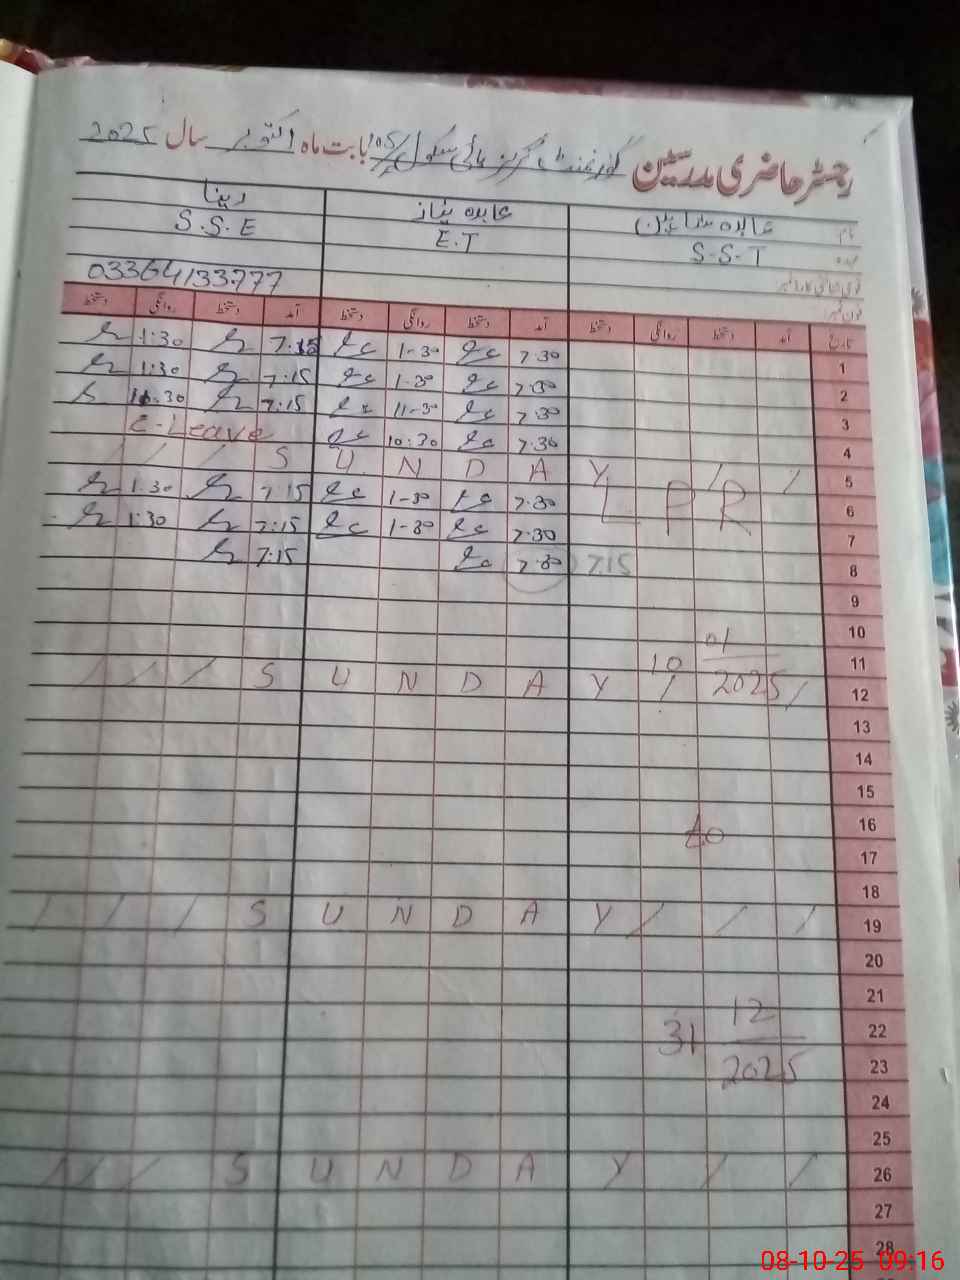 رجسٹر حاضری مدرسین گورنمنٹ گرلز ہائی سکول بابت ماہ اکتوبر سال 2025
نام عابدہ عابدہ نیاز
عہدہ S.S.T E.T S.S.E
03364133777
تاریخ آمد دستخط روانگی دستخط آمد دستخط روانگی دستخط آمد دستخط روانگی دستخط
1 7.30 1-30 7.15 1:30
2 7.30 1-30 7.15 1:30
3 7.30 11-30 7.15 11:30
4 7.30 10:30 E-Leave
5 / / S U N D A Y / / /
6 L P R 7.30 1-30 7.15 1:30
7 7.30 1-30 7.15 1:30
8 7.15 7.30 7.15
9
10
11 10 01
12 / 2025 / S U N D A Y / / /
13
14
15
16 to
17
18
19 / / / S U N D A Y / / /
20
21
22 31 12
23 2025
24
25
26 / / / S U N D A Y / /
27
28
08-10-25 09:16